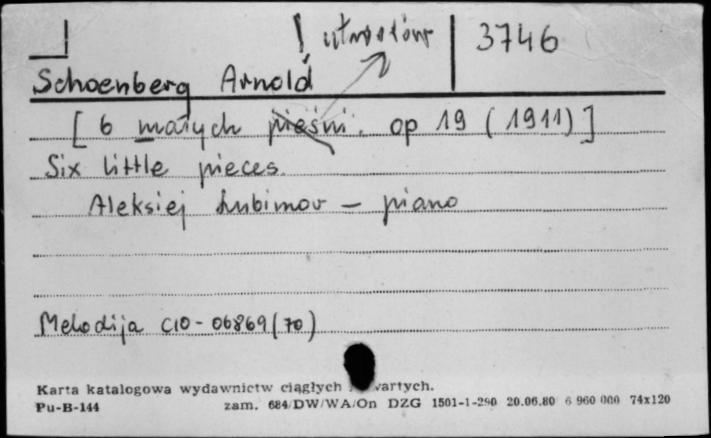 ! utworów 3746
Schoenberg Arnold
[ 6 małych pieśni. op 19 (1911) ]
Six little pieces.
Aleksiej Lubimov – piano
Melodija C10-06869(70)
Karta katalogowa wydawnictw ciągłych wartych.
Pu-B-144 zam. 684/DW/WA/On DZG 1501-1-290 20.06.80 6 960 000 74x120